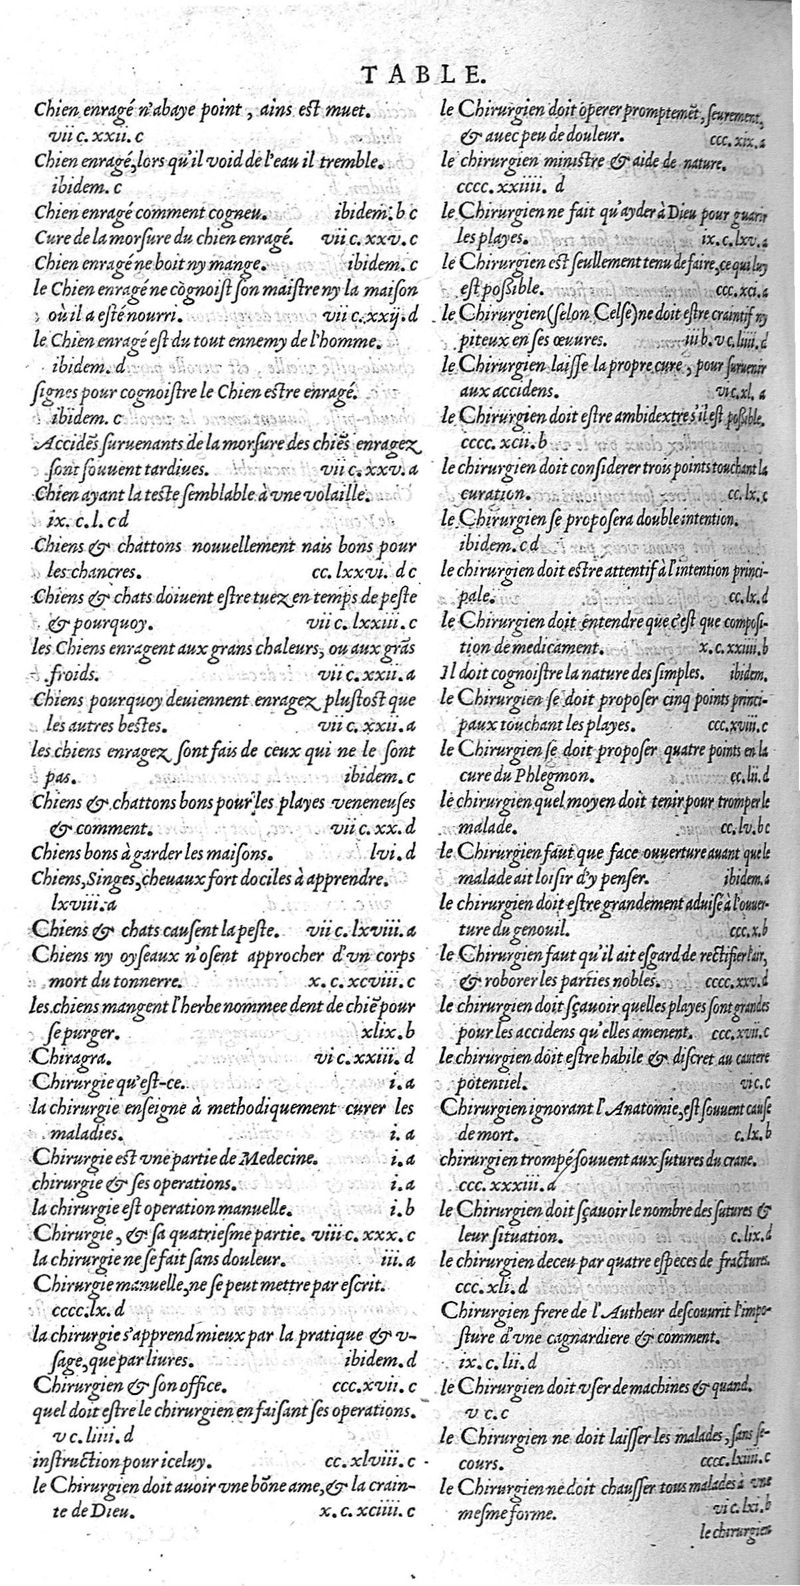 TABLE.
Chien enragé n'abaye point, ains est muet.
vii c. xxii. c
Chien enragé, lors qu'il void de l'eau il tremble.
ibidem. c
Chien enragé comment cogneu. ibidem. b c
Cure de la morsure du chien enragé. vii c. xxv. c
Chien enragé ne boit ny mange. ibidem. c
le Chien enragé ne cògnoist son maistre ny la maison
où il a esté nourri. vii c. xxij. d
le Chien enragé est du tout ennemy de l'homme.
ibidem. d
signes pour cognoistre le Chien estre enragé.
ibidem. c
Accidēs suruenants de la morsure des chiēs enragez
sont souuent tardiues. vii c. xxv. a
Chien ayant la teste semblable à vne volaille.
ix. c. l. c d
Chiens & chattons nouuellement nais bons pour
les chancres. cc. lxxvi. d c
Chiens & chats doiuent estre tuez en temps de peste
& pourquoy. vii c. lxxiii. c
les Chiens enragent aux grans chaleurs, ou aux grās
froids. vii c. xxii. a
Chiens pourquoy deuiennent enragez plustost que
les autres bestes. vii c. xxii. a
les chiens enragez sont fais de ceux qui ne le sont
pas. ibidem. c
Chiens & chattons bons pour les playes veneneuses
& comment. vii c. xx. d
Chiens bons à garder les maisons. lvi. d
Chiens, Singes, cheuaux fort dociles à apprendre.
lxviii. a
Chiens & chats causent la peste. vii c. lxviii. a
Chiens ny oyseaux n'osent approcher d'vn corps
mort du tonnerre. x. c. xcviii. c
les chiens mangent l'herbe nommee dent de chiē pour
se purger. xlix. b
Chiragra. vi c. xxiii. d
Chirurgie qu'est-ce. i. a
la chirurgie enseigne à methodiquement curer les
maladies. i. a
Chirurgie est vne partie de Medecine. i. a
chirurgie & ses operations. i. a
la chirurgie est operation manuelle. i. b
Chirurgie, & sa quatriesme partie. viii c. xxx. c
la chirurgie ne se fait sans douleur. iii. a
Chirurgie manuelle, ne se peut mettre par escrit.
cccc. lx. d
la chirurgie s'apprend mieux par la pratique & v-
sage, que par liures. ibidem. d
Chirurgien & son office. ccc. xvii. c
quel doit estre le chirurgien en faisant ses operations.
v c. liiii. d
instruction pour iceluy. cc. xlviii. c
le Chirurgien doit auoir vne bōne ame, & la crain-
te de Dieu. x. c. xciiii. c
le Chirurgien doit operer promptemēt, seurement,
& auec peu de douleur. ccc. xix. a
le chirurgien ministre & aide de nature.
cccc. xxiiii. d
le Chirurgien ne fait qu'ayder à Dieu pour guarir
les playes. ix. c. lxv. a
le Chirurgien est seullement tenu de faire, ce qui luy
est possible. ccc. xci. a
le Chirurgien (selon Celse) ne doit estre craintif ny
piteux en ses œuures. iii b. v c. liiii. d
le Chirurgien laisse la propre cure, pour suruenir
aux accidens. vi c. xl. a
le Chirurgien doit estre ambidextre s'il est possible.
cccc. xcii. b
le chirurgien doit considerer trois points touchant la
curation. cc. lx. c
le Chirurgien se proposera double intention.
ibidem. c d
le chirurgien doit estre attentif à l'intention princi-
pale. cc. lx. d
le Chirurgien doit entendre que c'est que composi-
tion de medicament. x. c. xxiiii. b
Il doit cognoistre la nature des simples. ibidem.
le Chirurgien se doit proposer cinq points princi-
paux touchant les playes. ccc. xviii. c
le Chirurgien se doit proposer quatre points en la
cure du Phlegmon. cc. lii. d
le chirurgien quel moyen doit tenir pour tromper le
malade. cc. lv. b c
le Chirurgien faut que face ouuerture auant que le
malade ait loisir d'y penser. ibidem. a
le chirurgien doit estre grandement aduisé à l'ouuer-
ture du genouil. ccc. x. b
le Chirurgien faut qu'il ait esgard de rectifier l'air,
& roborer les parties nobles. cccc. xxv. d
le chirurgien doit sçauoir quelles playes sont grandes
pour les accidens qu'elles amenent. ccc. xvii. c
le chirurgien doit estre habile & discret au cautere
potentiel. vi c. c
Chirurgien ignorant l'Anatomie, est souuent cause
de mort. c. lx. b
chirurgien trompé souuent aux sutures du crane.
ccc. xxxiii. a
le Chirurgien doit sçauoir le nombre des sutures &
leur situation. c. lix. d
le chirurgien deceu par quatre especes de fractures.
ccc. xli. d
Chirurgien frere de l'Autheur descouurit l'impo-
sture d'vne cagnardiere & comment.
ix. c. lii. d
le Chirurgien doit vser de machines & quand.
v c. c
le Chirurgien ne doit laisser les malades, sans se-
cours. cccc. lxiiii. c
le Chirurgien ne doit chausser tous malades à vne
mesme forme. vi c. lxi. b
le chirurgien